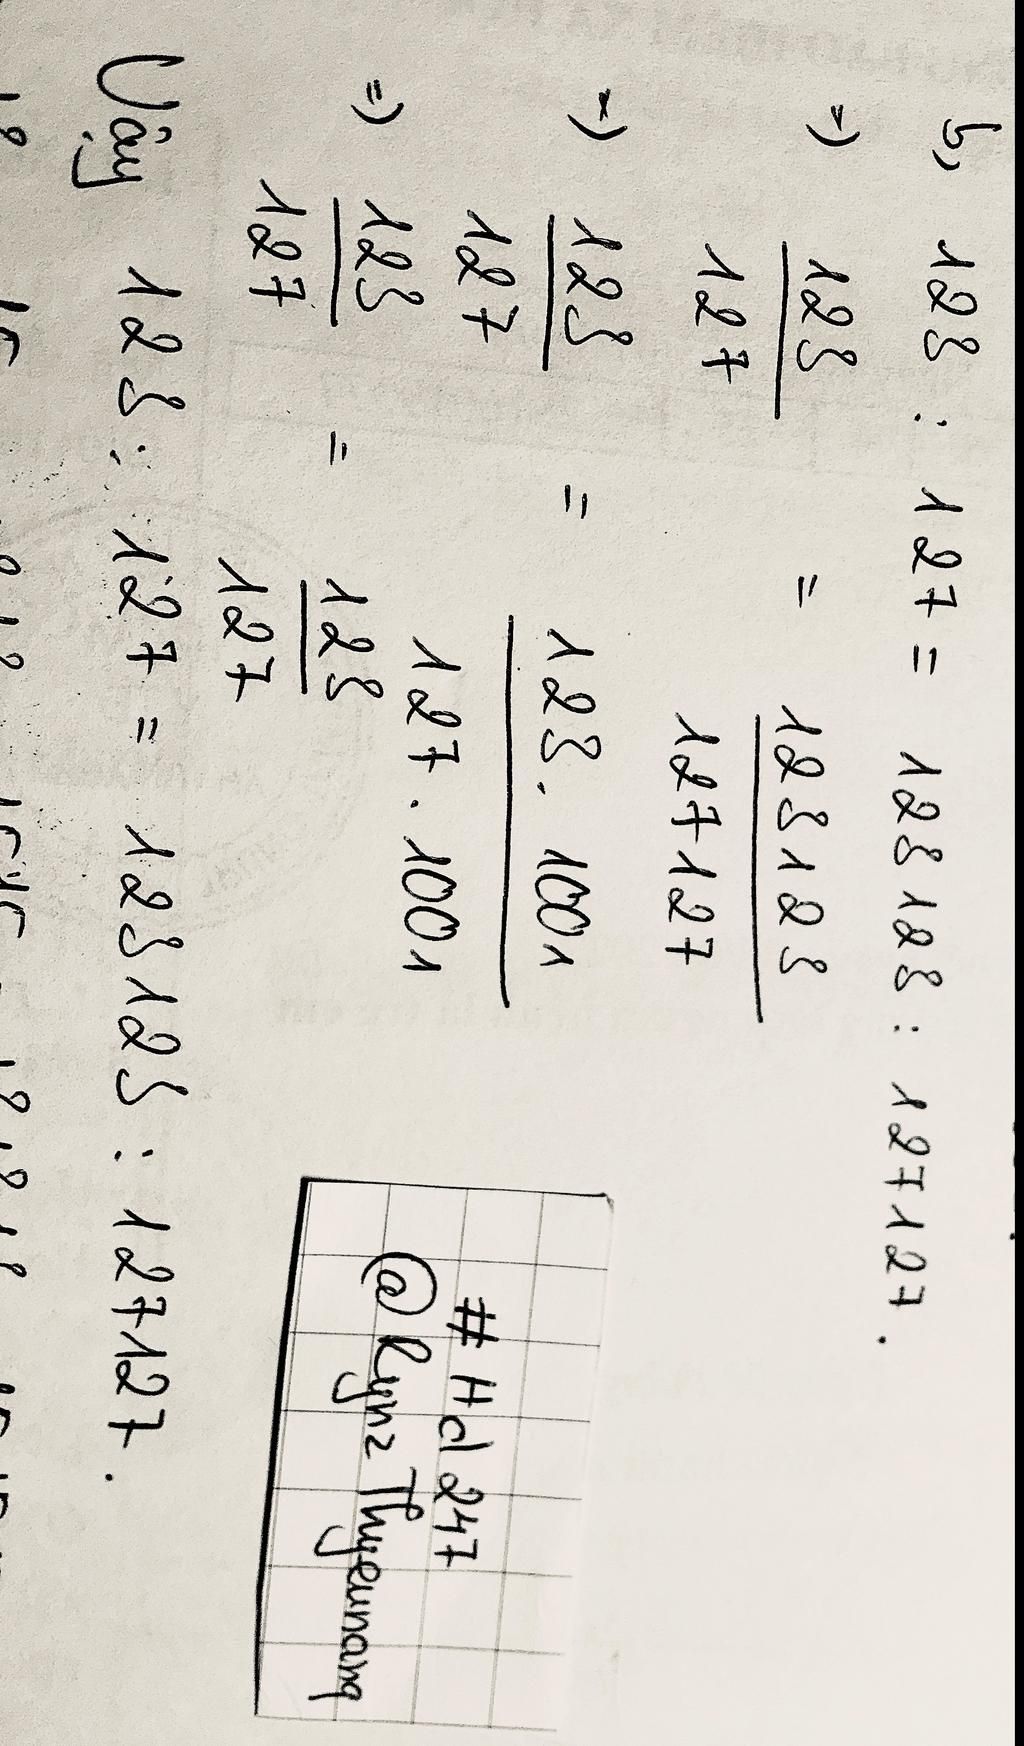 b, 123 : 127 = 123123 : 127127.
=) 123/127 = 123123/127127
=) 123/127 = 123 . 1001/127 . 1001
=) 123/127 = 123/127
Vậy 123 : 127 = 123123 : 127127.
# Hd247
@Kynz Thyeunang